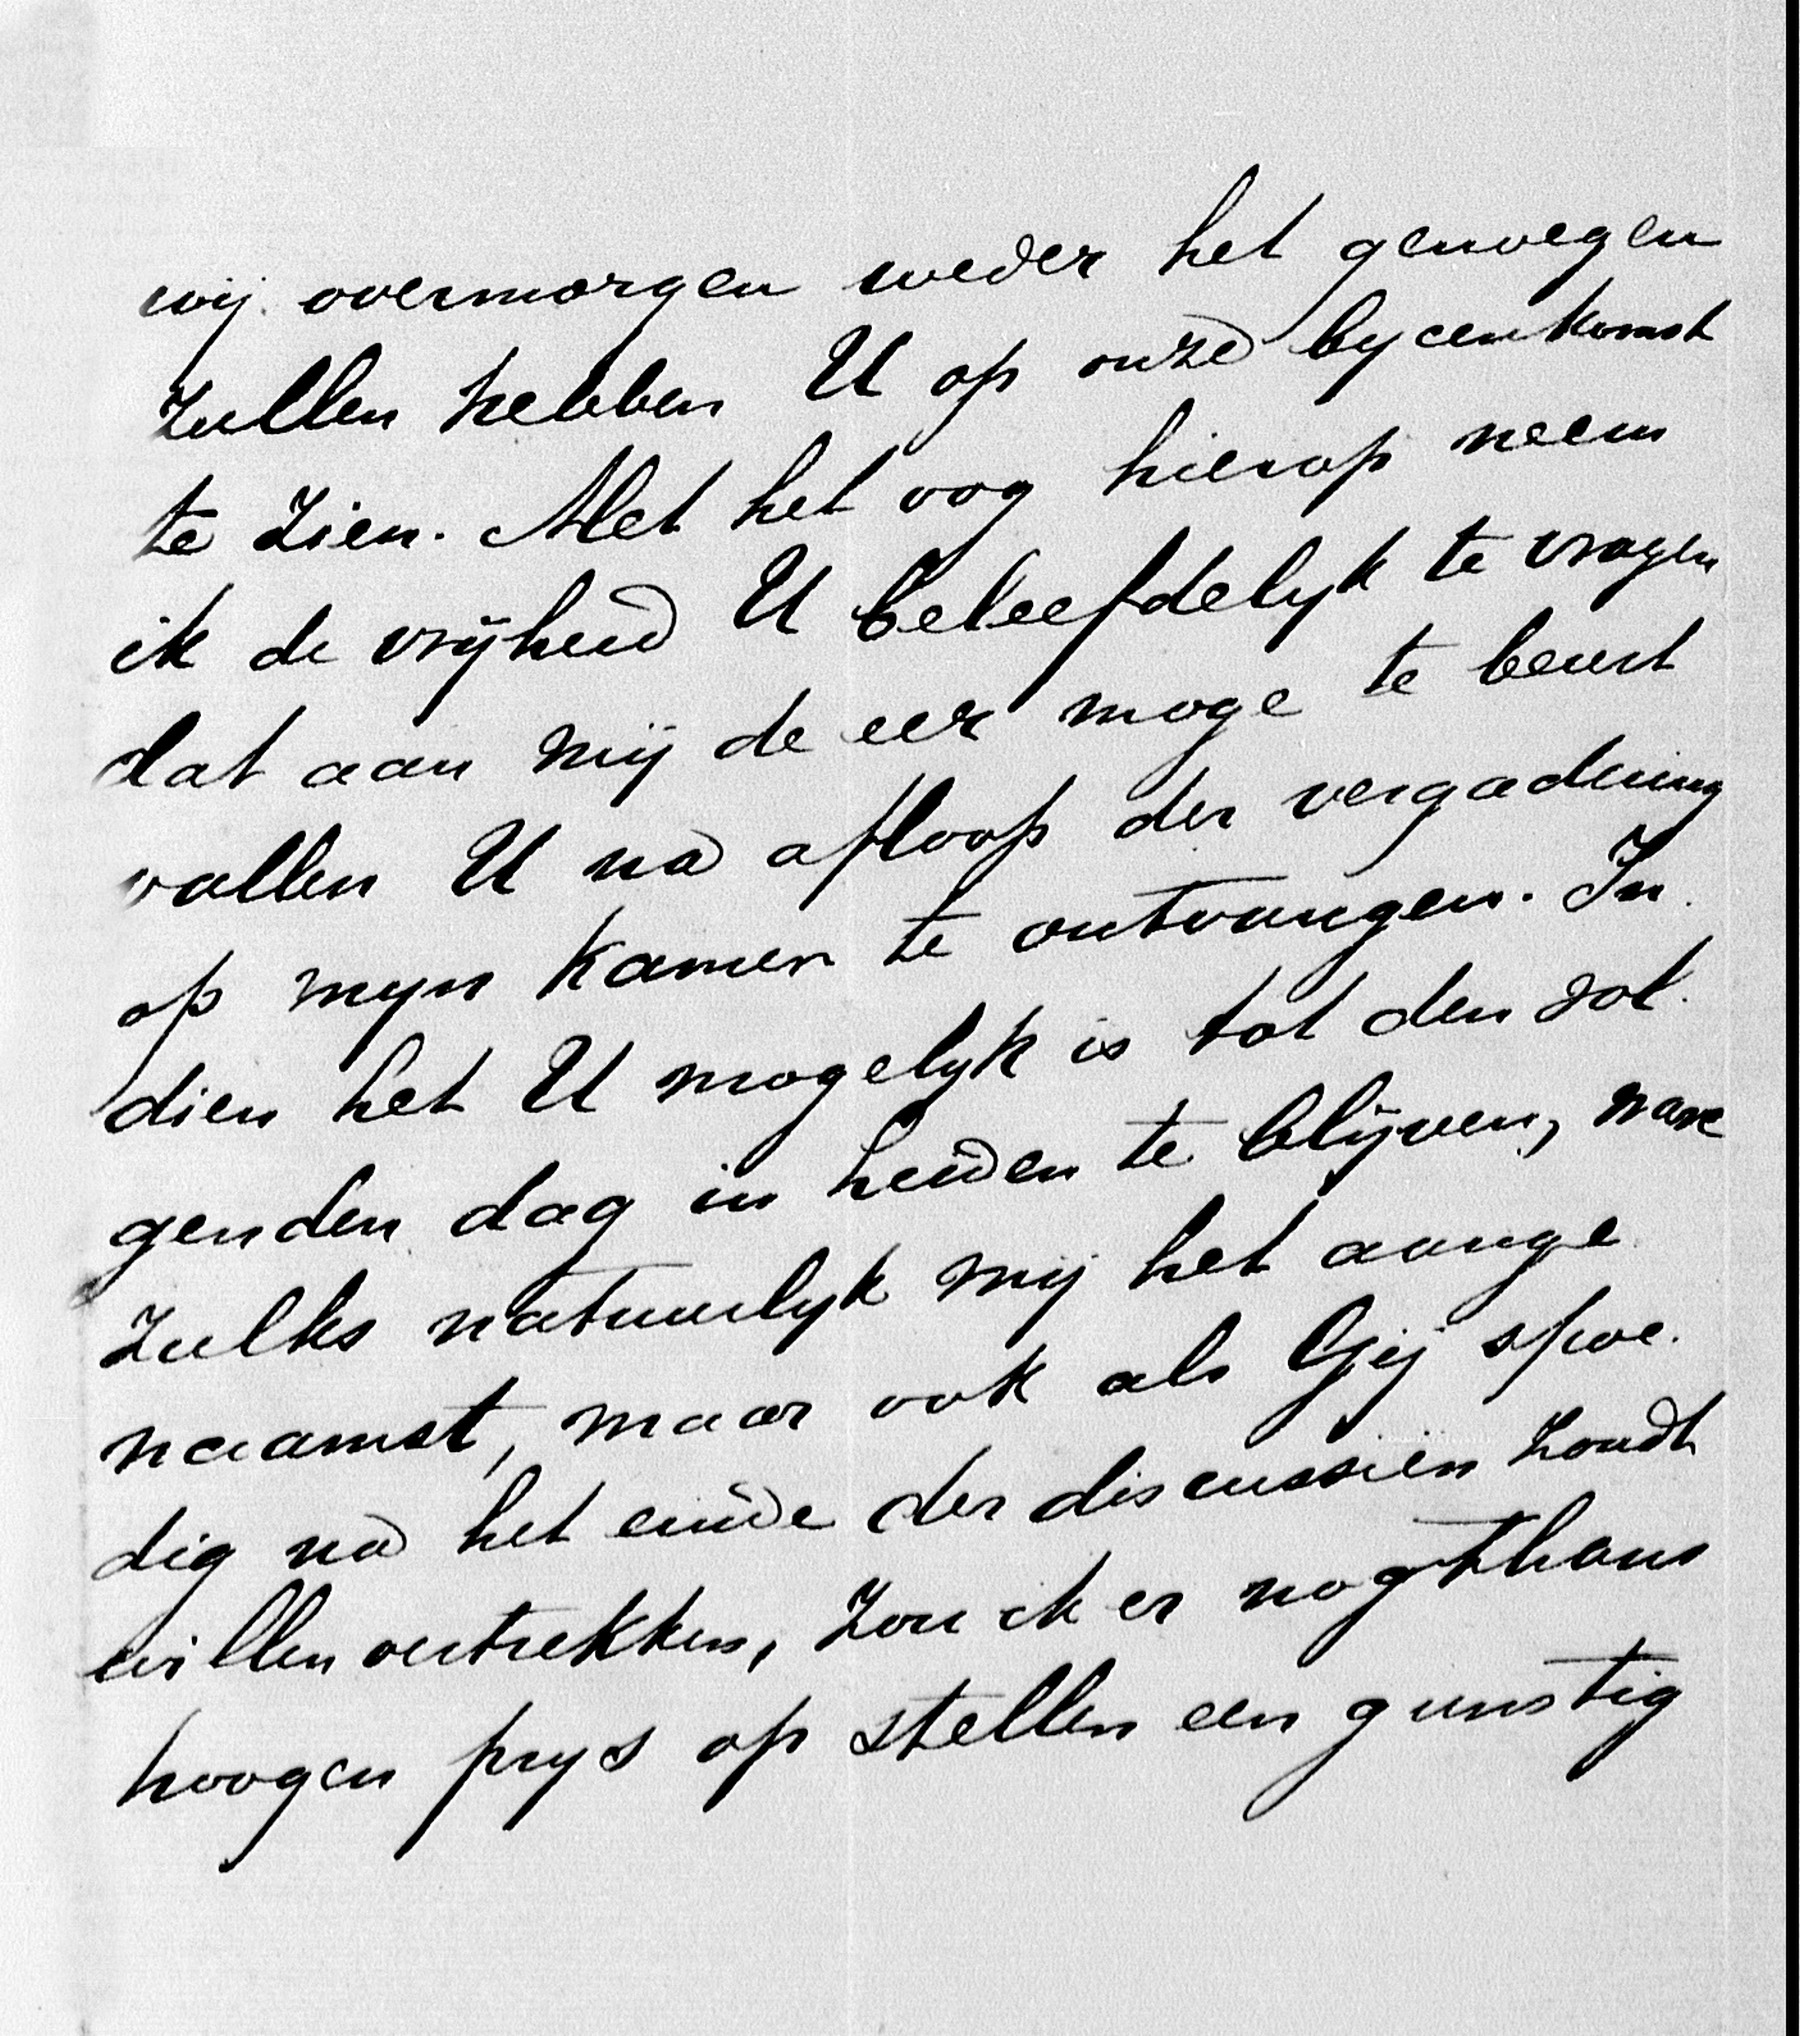 wij overmorgen weder het genoegen
zullen hebben U op onze byeenkomst
te zien. Met het oog hierop neem
ik de vrijheid U beleefdelyk te vragen
dat aan mij de eer moge te beurt
vallen U na afloop der vergadering
op myn kamer te ontvangen. In
dien het U mogelyk is tot den vol
genden dag in Leiden te blijven, ware
zulks natuurlyk mij het aange
naamst, maar ook als Gij spoe
dig na het einde der discussiën zoudt
willen vertrekken, zou ik er nogthans
hoogen prys op stellen een gunstig